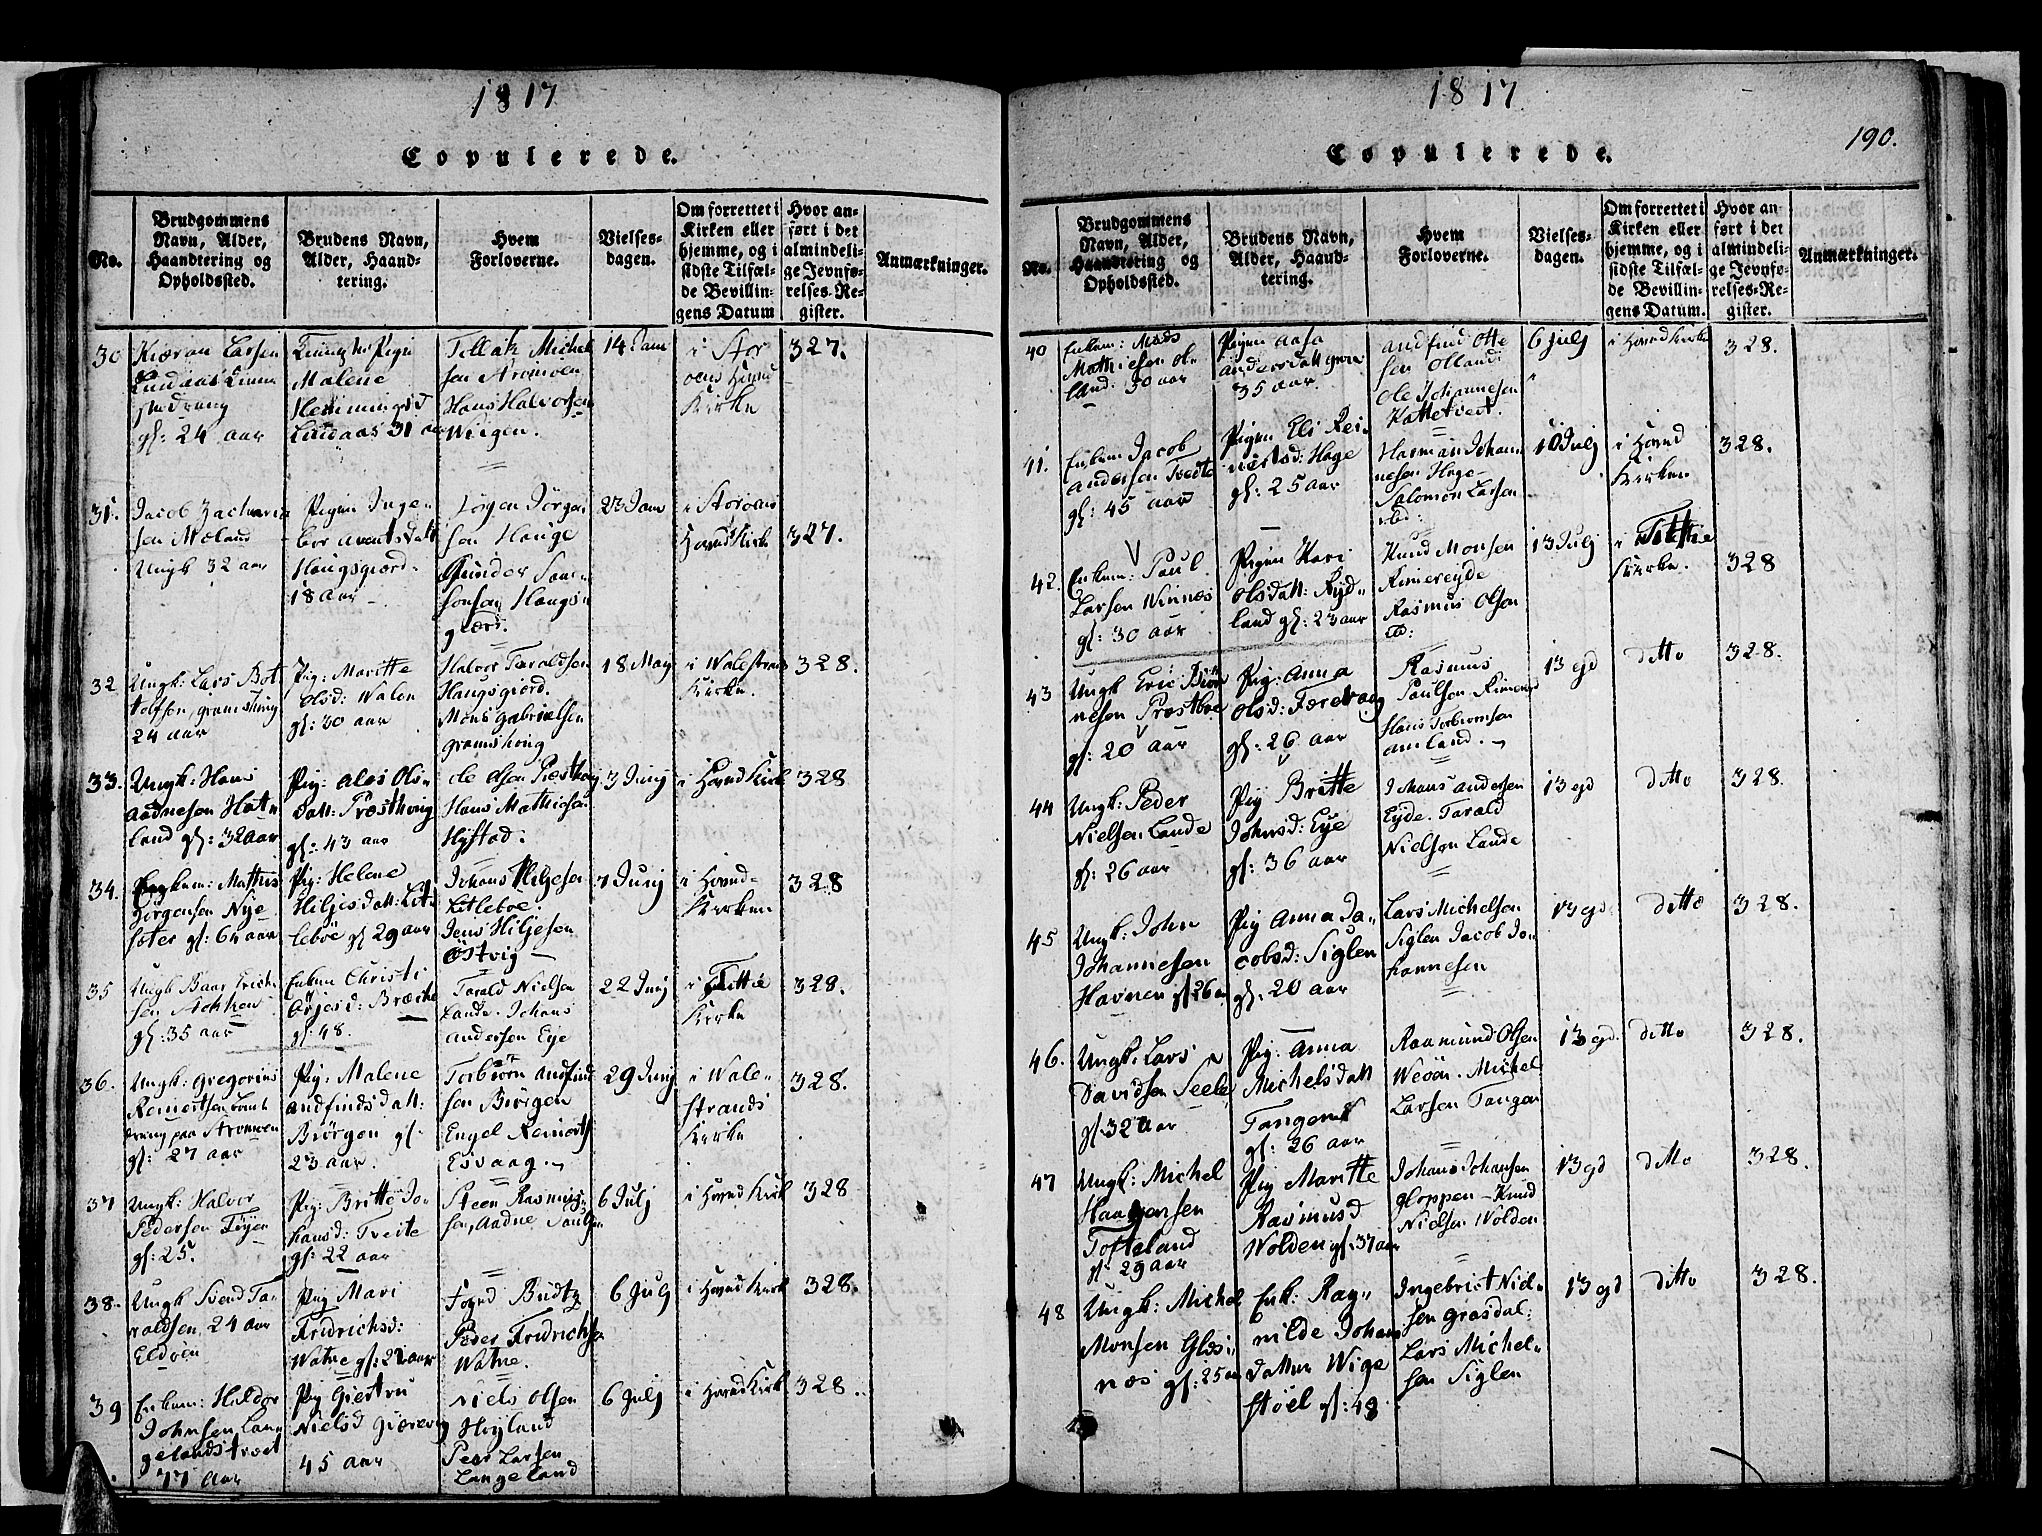 1817
Copulerede.
No.
Brudgommens
Navn, Alder,
Haandtering og
Opholdssted.
Brudens Navn,
Alder, Haand-
tering.
Hvem
Forloverne.
Vielses-
dagen.
Om forrettet i
Kirken eller
hjemme, og i
sidste Tilfæl-
de Bevillin-
gens Datum
Hvor an-
ført i det
almindeli-
ge Jevnfø-
relses-Re-
gister.
Anmærkninger.
30
Larsen
gl: 24 aar
Malene
Hemmingsd
Lindaas 31 aar
Tellak Michel
sen
Hans Halvorsen
Wiigen.
14 Jan
i Stor
oens Hoved
Kirke
327.
31.
Jacob Zacharia
sen Moland
Ungk 32 aar
Pigen Inge-
bor
Haugsgiærd
18 aar
Jörgen Jörgen
sen Hauge
Gunder
Haugs-
giærd.
23 Jan
i Storoens
Hoved Kirk
327.
32
Ungk: Lars Bot
tolfsen
24 aar
Pig: Maritte
Olsd: Walen
gl: 30 aar
Halvor Taraldsen
Haugsgiord.
Mons Gabrielsen
18 May
i Walestrands
Kirke.
328.
33.
Ungk: Hans
Aadnesen Hat-
land gl: 32 aar
Pig: Ales Ols-
Datt: Præsthoug
gl: 43 aar
Ole Olsen Præsthoug
Hans Mathiesen
Hystad.
3 Junj
i Hoved Kirk
328
34.
Enkem: Mathis
Jörgensen Nye-
sæter gl: 64 aar
Pig: Helene
Hiljesdatt: Lit-
leboe gl 29 aar
Johans Hiljesen
Litleboe.
Jens Hiljesen
Östvig
7 Junj
i Hoved-
Kirken
328
35
Ungk Baar Erich
sen
gl: 35 aar
Enken Christi
Börjesd: Bræcke
gl: 48.
Tarald Nielsen
Lande. Johans
Andersen Eye
22 Junj
i Fittie
Kirke
328.
36.
Ungk: Gregorius
Reinertsen
gl: 27 aar
Pig: Malene
Andfindsdatt:
Biörgen gl:
23 aar.
Torbiörn Andfind
sen Biörgen
Engel Reinerts
Esvaag.
29 Junj
i Wale-
strands
Kirke
328.
37
Ungk: Halvor
Pedersen
gl: 25.
Pig: Britte Jo-
hansd: Tveite
gl: 22 aar
Steen Rasmus-
sen, Aadne Paulsen
6 Julj
i Hoved Kirk
328
38.
Ungk Svend Ta-
raldsen, 24 aar
Eldöen
Pig Mari
Fridrichsd:
Watne gl: 22 aar
Foged Budtz
Peder Fridrichsen
Watne.
6 Julj
i Hoved Kirk
328.
39
Enkem: Haldor
Johnsen Lan-
gelandstræet
77 aar
Pig Giertru
Nielsd
45 aar
Niels Olsen
Höjland
Peer Larsen
Langeland
6 Julj
i Hoved Kirk
328.
1817
190.
Copulerede.
No.
Brudgommens
Navn, Alder,
Haandtering og
Opholdssted.
Brudens Navn,
Alder, Haand-
tering.
Hvem
Forloverne.
Vielses-
dagen.
Om forrettet i
Kirken eller
hjemme, og i
sidste Tilfæl-
de Bevillin-
gens Datum.
Hvor an-
ført i det
almindeli-
ge Jevnfø-
relses-Re-
gister.
Anmærkninger.
40
Enkem: Mads
Mathiesen Ol-
land: 50 aar
Pigen Aasa
Andersdatt
35 aar.
Andfind Otte
sen Olland
Ole Johannesen
Kattetvert.
6 Julj
i Hoved Kirke
328.
41.
Enkem Jacob
Andersen Tvedte
gl: 45 aar
Pigen Eli Rei-
nertsd: Hage
gl: 25 aar
Herman Johan
nesen Hage
Salomon Larsen
ibd:
10 Julj
i Hoved
Kirken
328.
42.
Enkem: Paul
Larsen Winnes
gl: 30 aar
Pigen Kari
Olsdatt: Ryd-
land gl: 23 aar
Knud Monsen
Rimereyde
Rasmus Olsen
13 Julj
i Fittie
Kirke.
328
43
Ungk Eric Biör
nesen Præstboe
gl: 20 aar
Pig: Anna
Olsd: Færevaag
gl: 26 aar
Rasmus
Paulsen
Hans Torbiornsen
Amland.
13 ejd
ditto
328.
44
Ungk: Peder
Nielsen Lande
gl: 26 aar
Pig Britte
Johnsd: Eye
gl: 36 aar
Johans Andersen
Eyde. Tarald
Nielsen Lande
13 ejd
ditto
328.
45
Ungk: John
Johannesen
Havnen gl: 26 aar
Pig Anna Ja-
cobsd: Siglen
gl: 20 aar
Lars Michelsen
Siglen Jacob Jo-
hannesen
13 ejd.
ditto
328.
46.
Ungk: Lars
Davidsen Seele
gl: 32 aar
Pig: Anna
Michelsdatt
Tangen
gl: 26 aar
Raamund Olsen
Weöen. Michel
Larsen Tangen
13 ejd.
ditto
328.
47
Ungk: Michel
Haagensen
Tofteland
gl: 29 aar
Pig Maritte
Rasmusd
Wolden gl: 37 aar
Johans Johansen
Gloppen - Knud
Nielsen Wolden
13 ejd
ditto
328.
48
Ungk: Michel
Monsen Gloes-
næs gl: 25 aar
Enk: Rag-
nilde Johans
datter Wige
stöel gl: 48
Ingebrict Niel-
sen Græsdal:
Lars Michel-
sen Siglen
13 ejd
ditto
328.